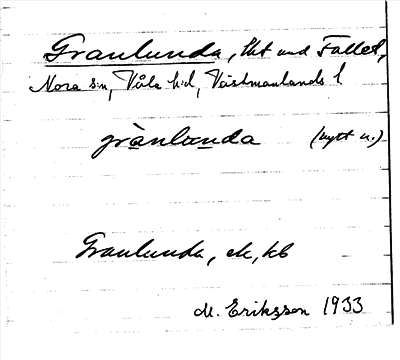 Granlunda, lht und Fallet,
Nora sn, Våla hd, Västmanlands l
grànlu̲nda (nytt n.)
Granlunda, ek, kb
M. Eriksson 1933